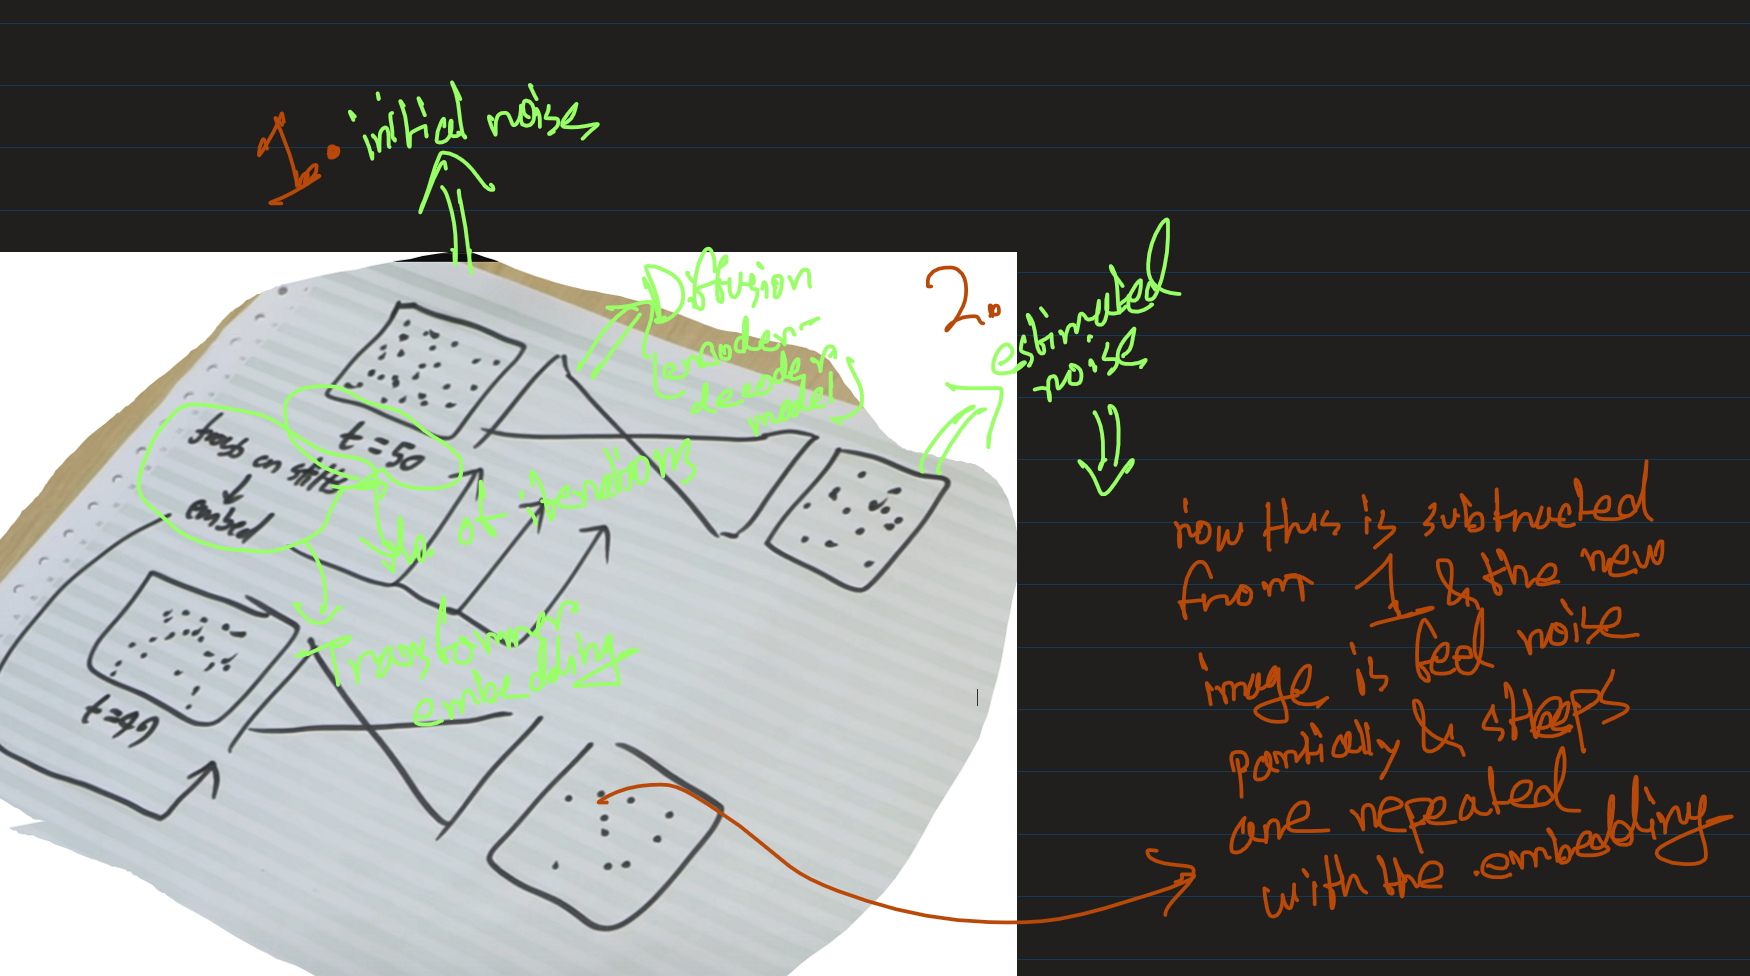 1. initial noise
Diffusion
(encoder-
decoder
model)
2. estimated
noise
t=50
frogs on stilts
embed
no of iterations
Transformer
embedding
t=49
now this is subtracted
from 1 & the new
image is fed noise
partially & steps
are repeated
with the embedding